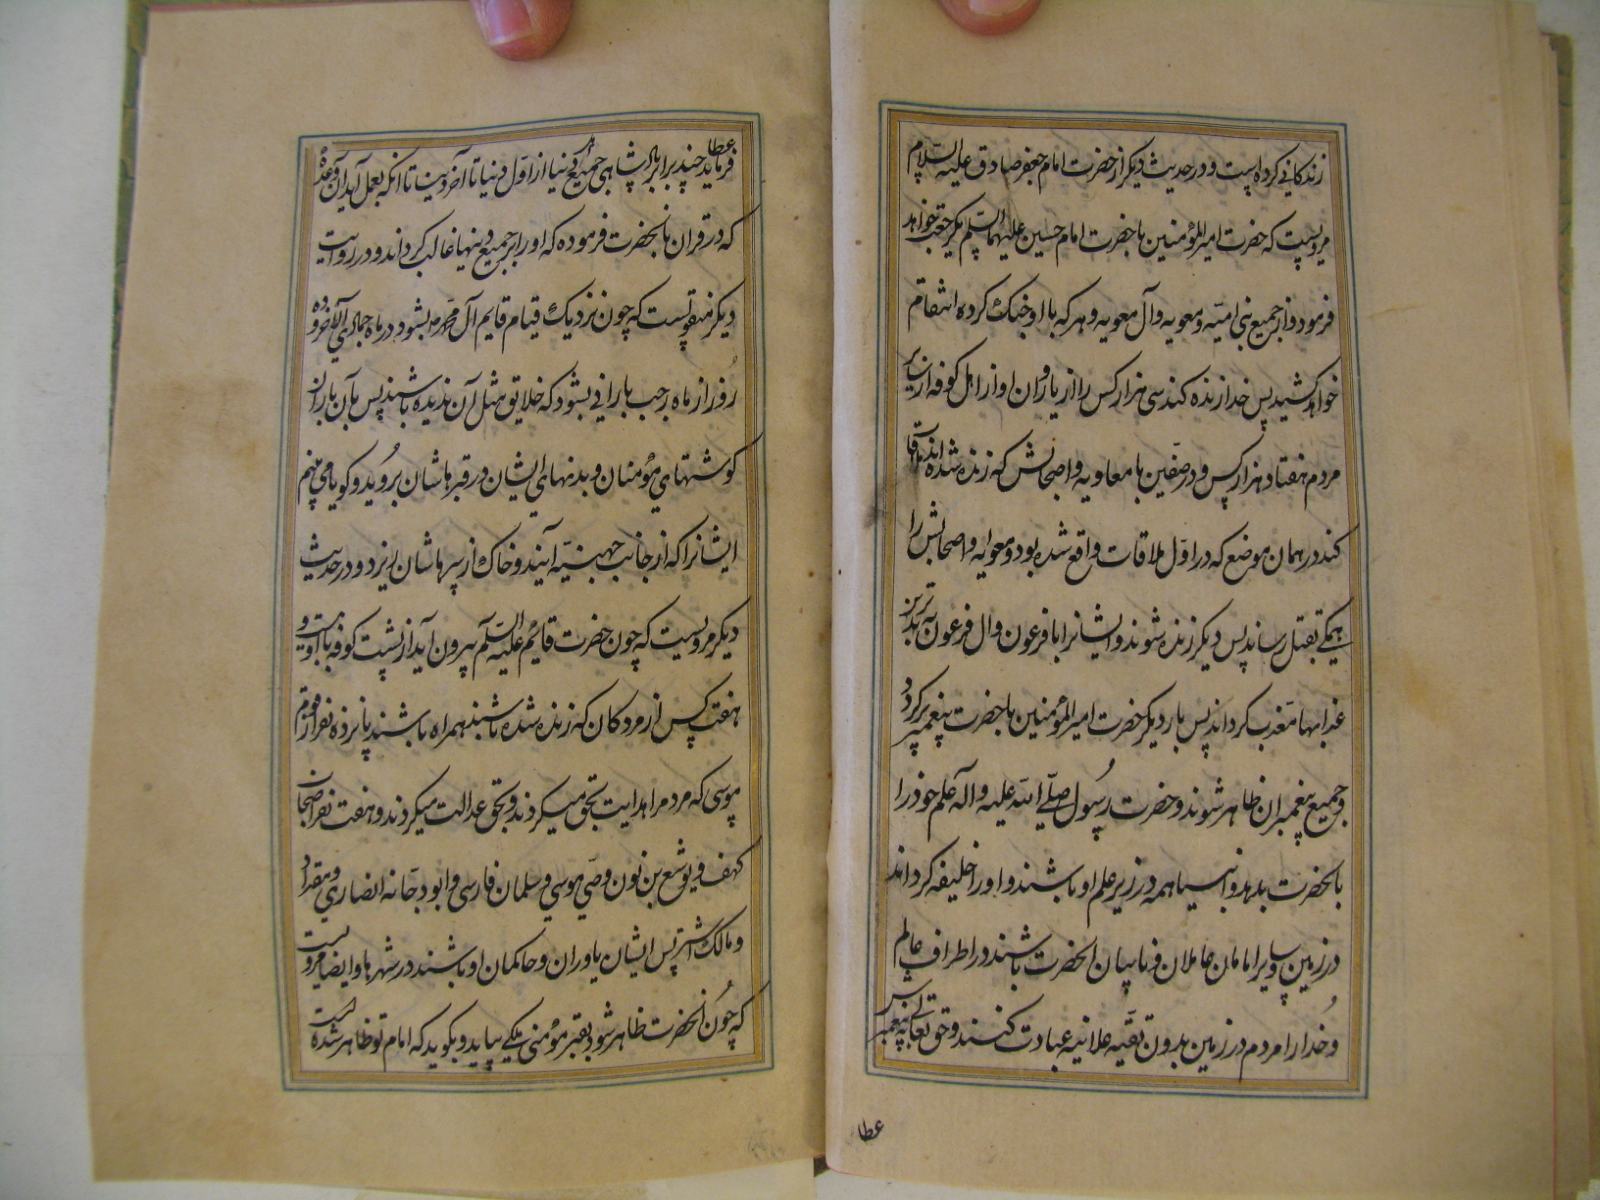 زندکانی کرده است و در حدیث دیکر از حضرت امام جعفر صادق علیه السلام
مرویست که حضرت امیر المؤمنین با حضرت امام حسین علیهما السلم یکرجعت خواهد
فرمود و از جمیع بنی امیّه و معویه و آل معویه و هر که با او جنک کرده انتقام
خواهد کشید پس خدا زنده کند سی هزار کس را از یاوران او از اهل کوفه و از سایر
مردم هفتاد هزار کس و در صفین با معاویه و اصحابش که زنده شده اند ملاقات
کند در همان موضع که در اوّل ملاقات واقع شده بود و معوایه و اصحابش را
همکی بقتل رساند پس دیکر زنده شوند و ایشانرا با فرعون و ال فرعون ببدترین
عذابها معذب کرداند پس بار دیکر حضرت امیر المؤمنین با حضرت پیغمبر برکردد
و جمیع پیغمبران ظاهر شوند و حضرت رسول صلّی الله علیه و اله علم خود را
بانحضرت بدهد و انبیا همه در زیر علم او باشند و او را خلیفه کرداند
در زمین و سایر امامان عاملان و نایبان انحضرت باشند در اطراف عالم
و خدا را مردم در زمین بدون تقیّه علانیه عبادت کنند و حق تعالی به پیغمبرش
عطا
عطا
فرماید چند برابر پادشاهی جمیع دنیا از اوّل دنیا تا آخر دنیا تا انکه بعمل آید آن وعده
که در قران بانحضرت فرموده که او را بر جمیع دینها غالب کرداند و در روایت
دیکر منقولست که چون نزدیک قیام قایم آل محمد بشود در ماه جمادی الاخر و ده
روز از ماه رجب بارانی بشود که خلایق مثل آن ندیده باشند پس بآن باران
کوشتهای مؤمنان و بدنهای ایشان در قبرهاشان بروید و کویا می بینم
ایشانرا که از جانب جهینیّه آیند و خاک از سرهاشان ریزد و در حدیث
دیکر مرویست که چون حضرت قائم علیه السّلم بیرون آید از پشت کوفه با او بیست و
هفت کس از مردکان که زنده شده باشند همراه باشند پانزده نفر از قوم
موسی که مردم را هدایت بحق میکردند و بحق عدالت میکردند و هفت نفر اصحاب
کهف و یوشع بن نون وصّی موسی و سلمان فارسی و ابو دجانه انصاری و مقداد
و مالک اشتر پس ایشان یاوران و حاکمان او باشند در شهرها و ایضا مرویست
که چون انحضرت ظاهر شود بقبر مؤمنی ملکی بیاید و بکوید که امام تو ظاهر شده است